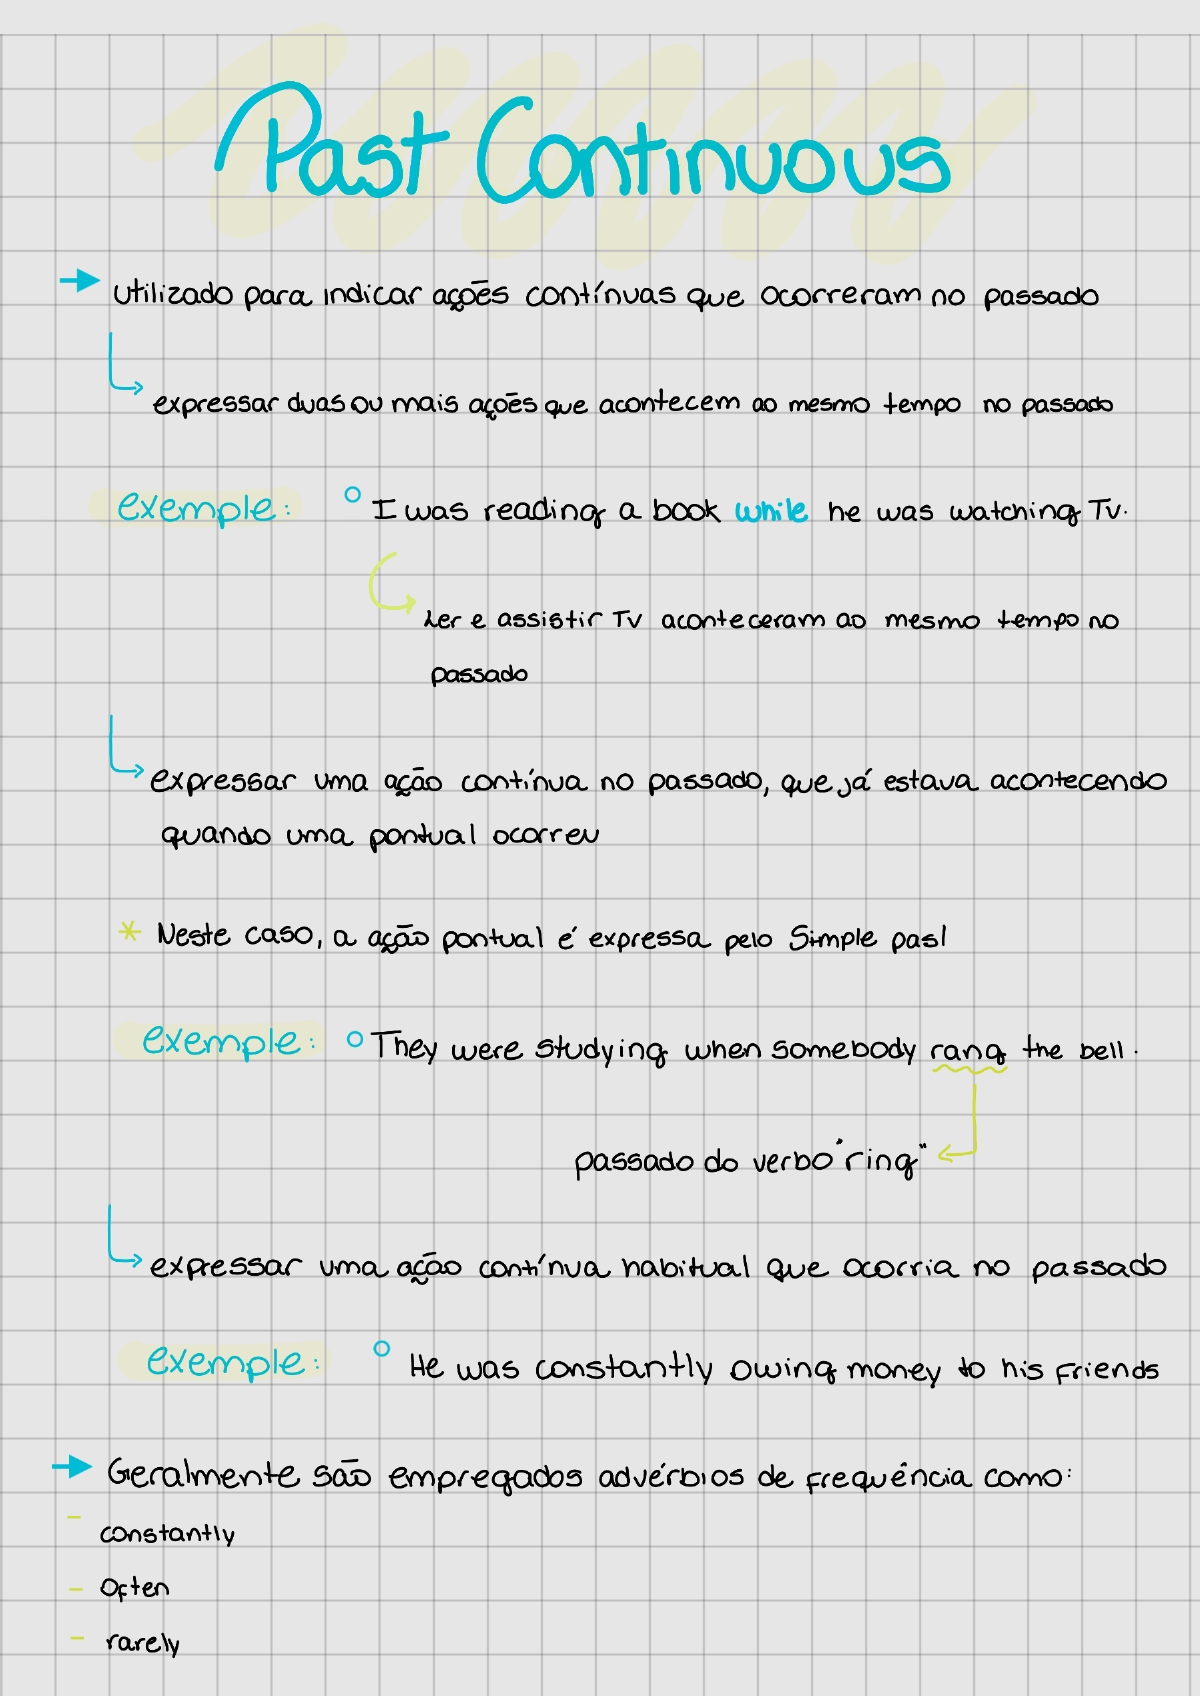 Past Continuous
utilizado para indicar ações contínuas que ocorreram no passado
expressar duas ou mais ações que acontecem ao mesmo tempo no passado
exemple: I was reading a book while he was watching Tv.
Ler e assistir Tv aconteceram ao mesmo tempo no
passado
expressar uma ação contínua no passado, que já estava acontecendo
quando uma pontual ocorreu
* Neste caso, a ação pontual é expressa pelo Simple pasl
exemple: They were studying when somebody rang the bell.
passado do verbo "ring"
expressar uma ação contínua habitual que ocorria no passado
exemple: He was constantly owing money to his friends
Geralmente são empregados advérbios de frequência como:
- constantly
- Often
- rarely